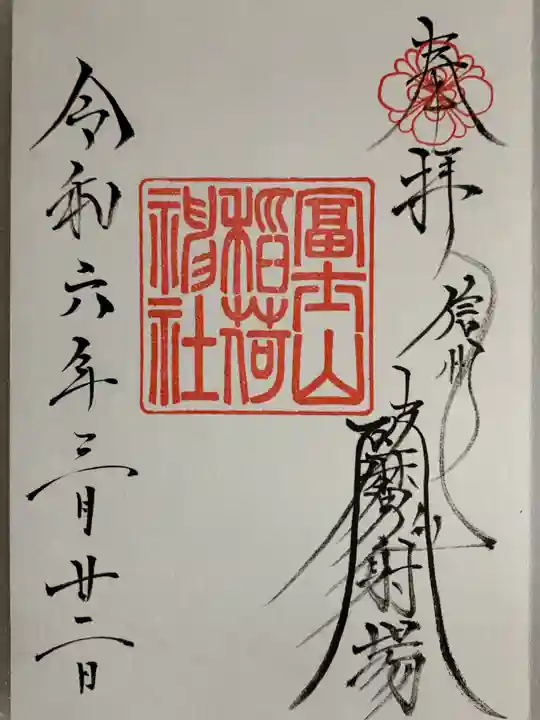 奉拝
信州
破魔射場
冨士山
稲荷
神社
令和六年三月廿二日